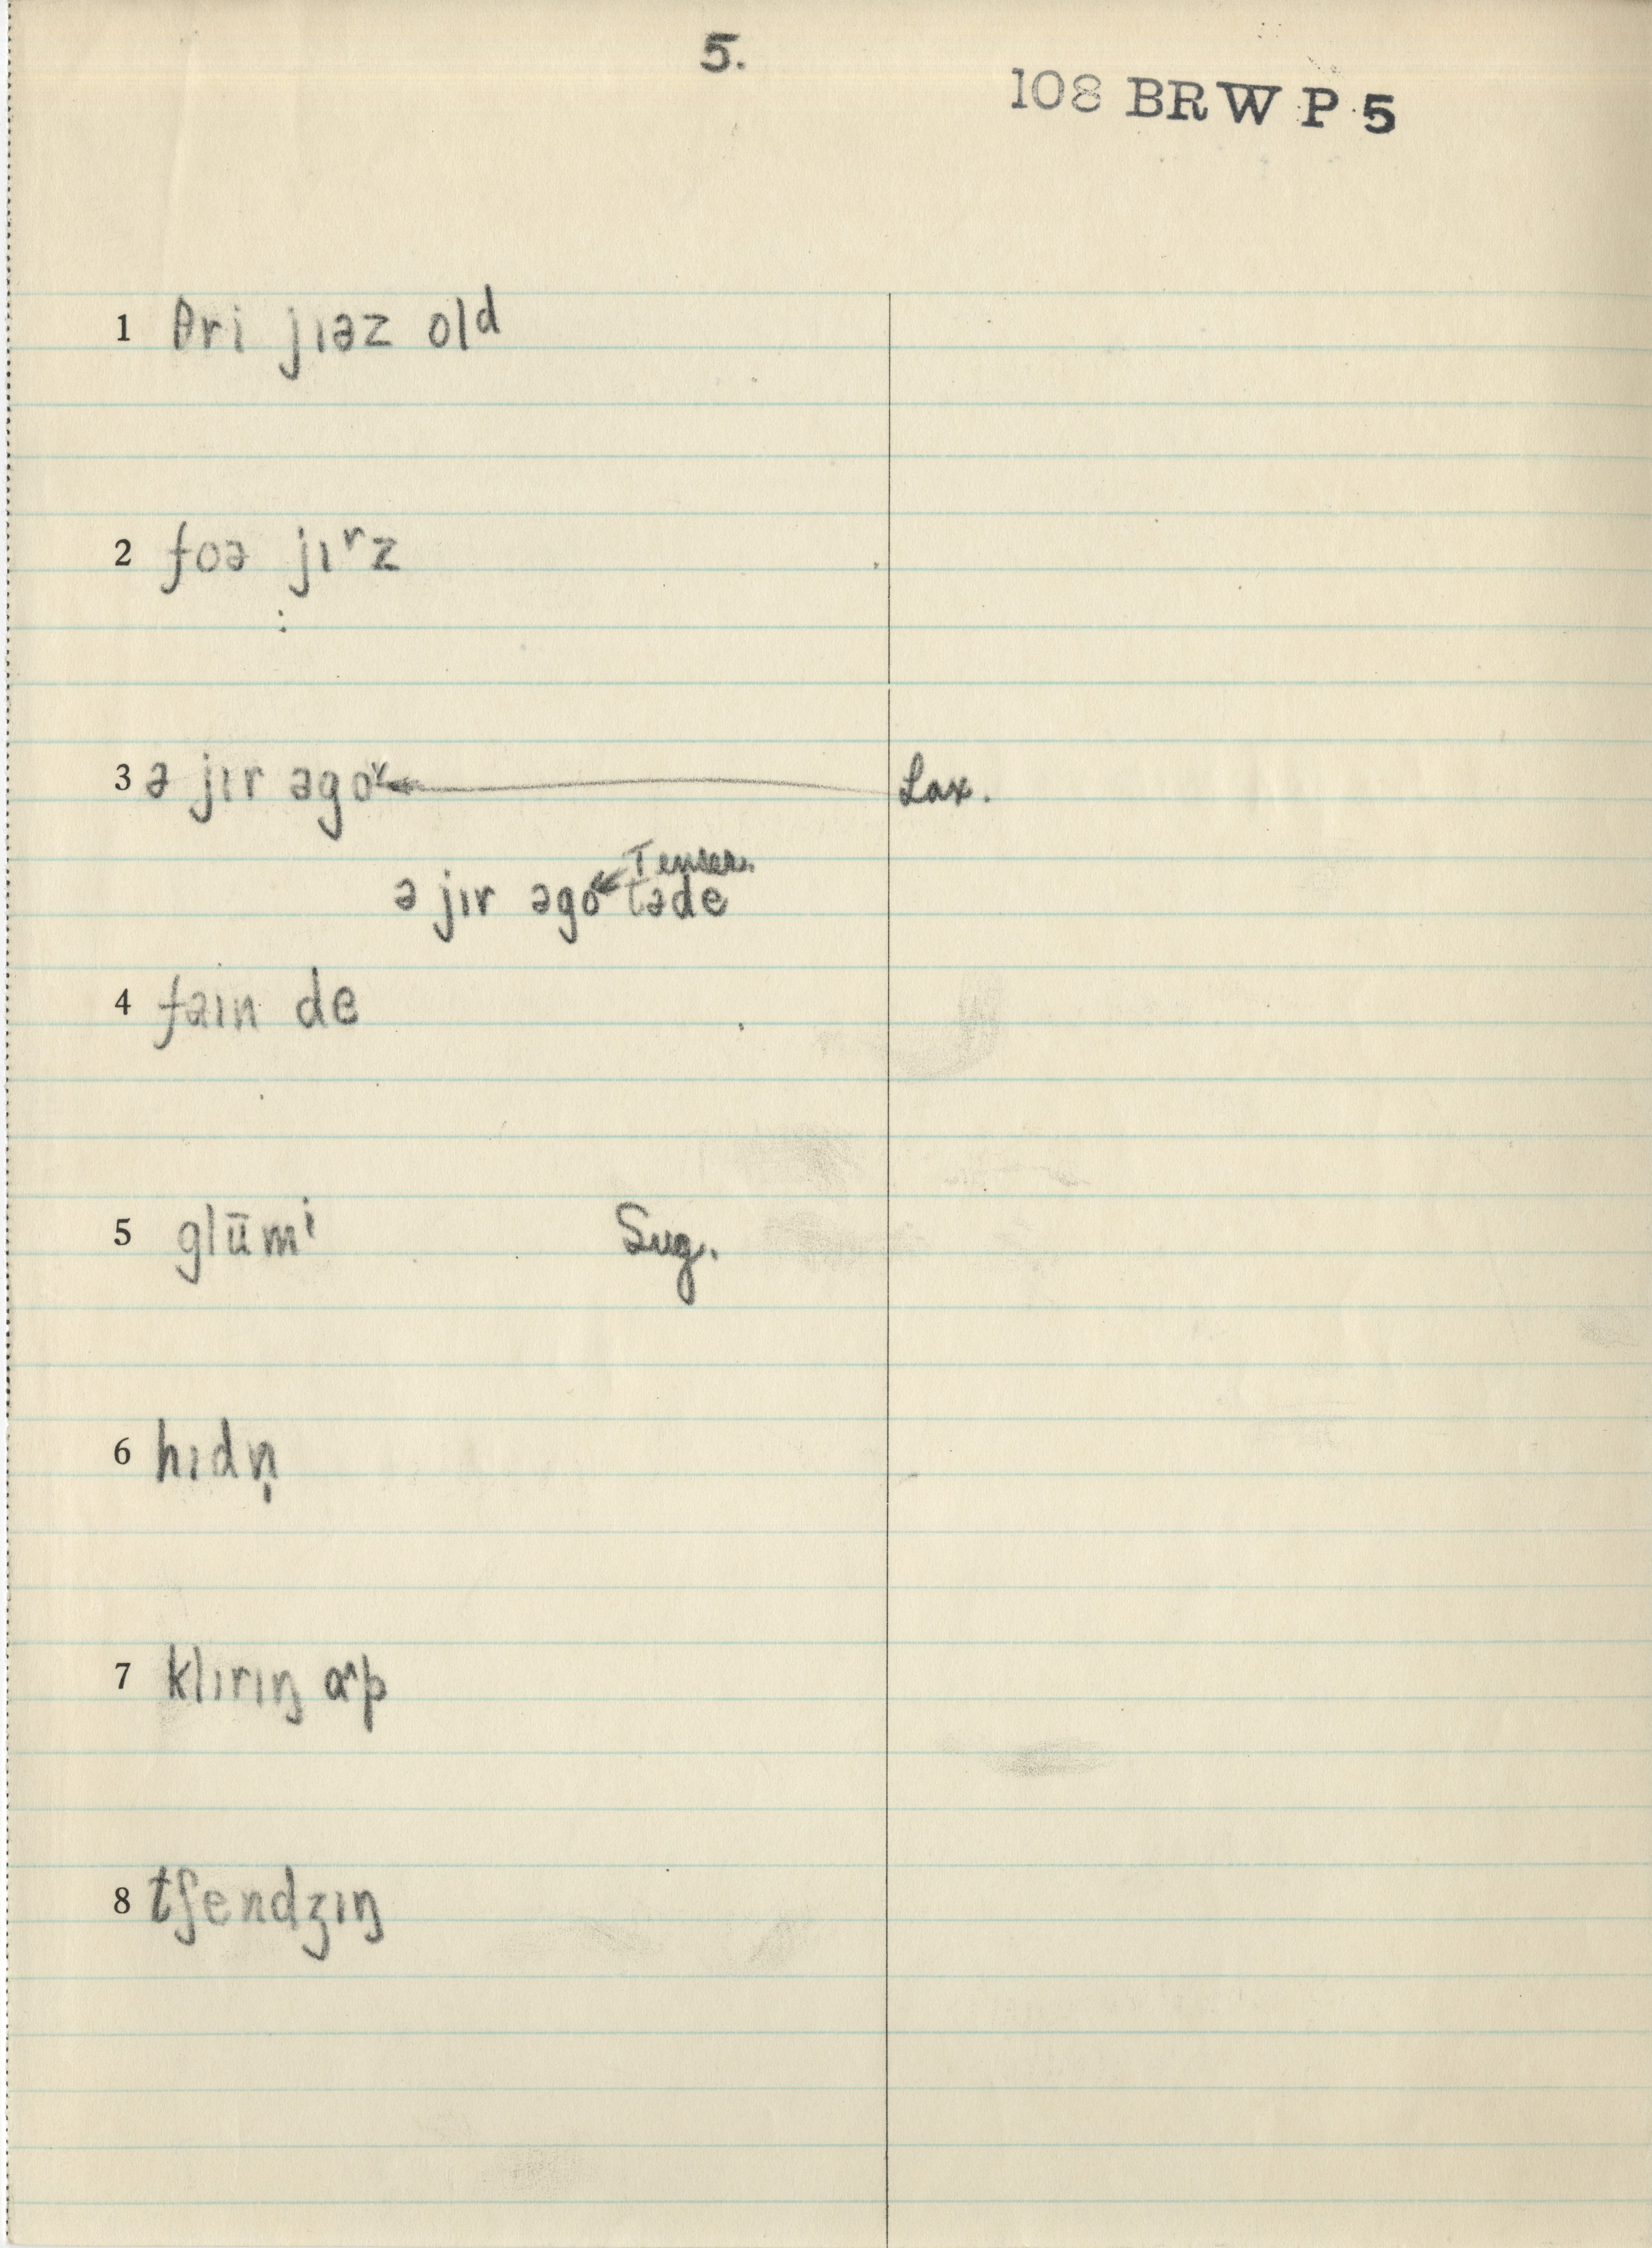 5.
108 BRW P 5
1 θri jɪəz old
2 foə jɪʳz
3 ə jɪr əgoᵛ Lax.
Tenser.
ə jɪr əgoᵛ təde
4 faɪn de
5 glūmⁱ Sug.
6 hɪdn̩
7 klɪrɪŋ ɑ˄p
8 tʃendʒɪŋ